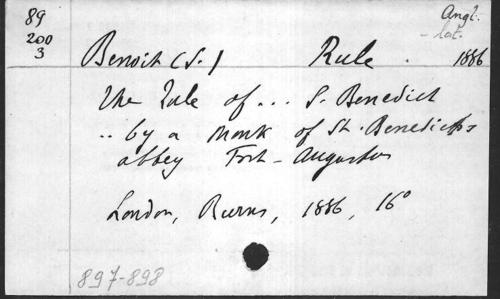 89
200
3
Angl.
- lat.
Benoit (S.) Rule . 1886
The Rule of ... S. Benedict
.. by a monk of St. Benedict's
abbey Fort-Augustus
London, Burns, 1886, 16°
897-898